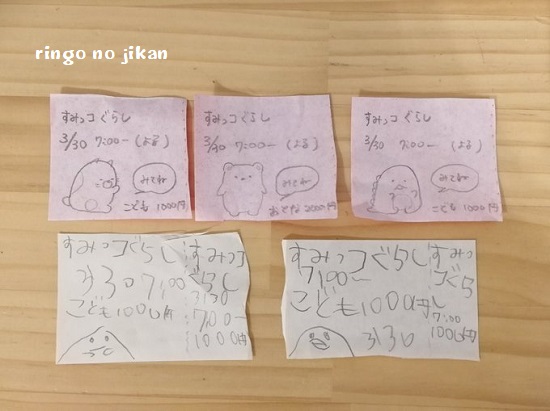 ringo no jikan
すみっコぐらし
3/30 7:00〜 (よる)
みてね
こども 1000円
すみっコぐらし
3/30 7:00〜 (よる)
みてね
おとな 2000円
すみっコぐらし
3/30 7:00〜 (よる)
みてね
こども 1000円
すみっコぐらし
3/30 7:00
こども1000円
すみっコ
ぐらし
3/30
7:00〜
1000円
すみっコぐらし
7:00〜
こども1000円
3/30
すみっ
コぐら
し
7:00
1000円